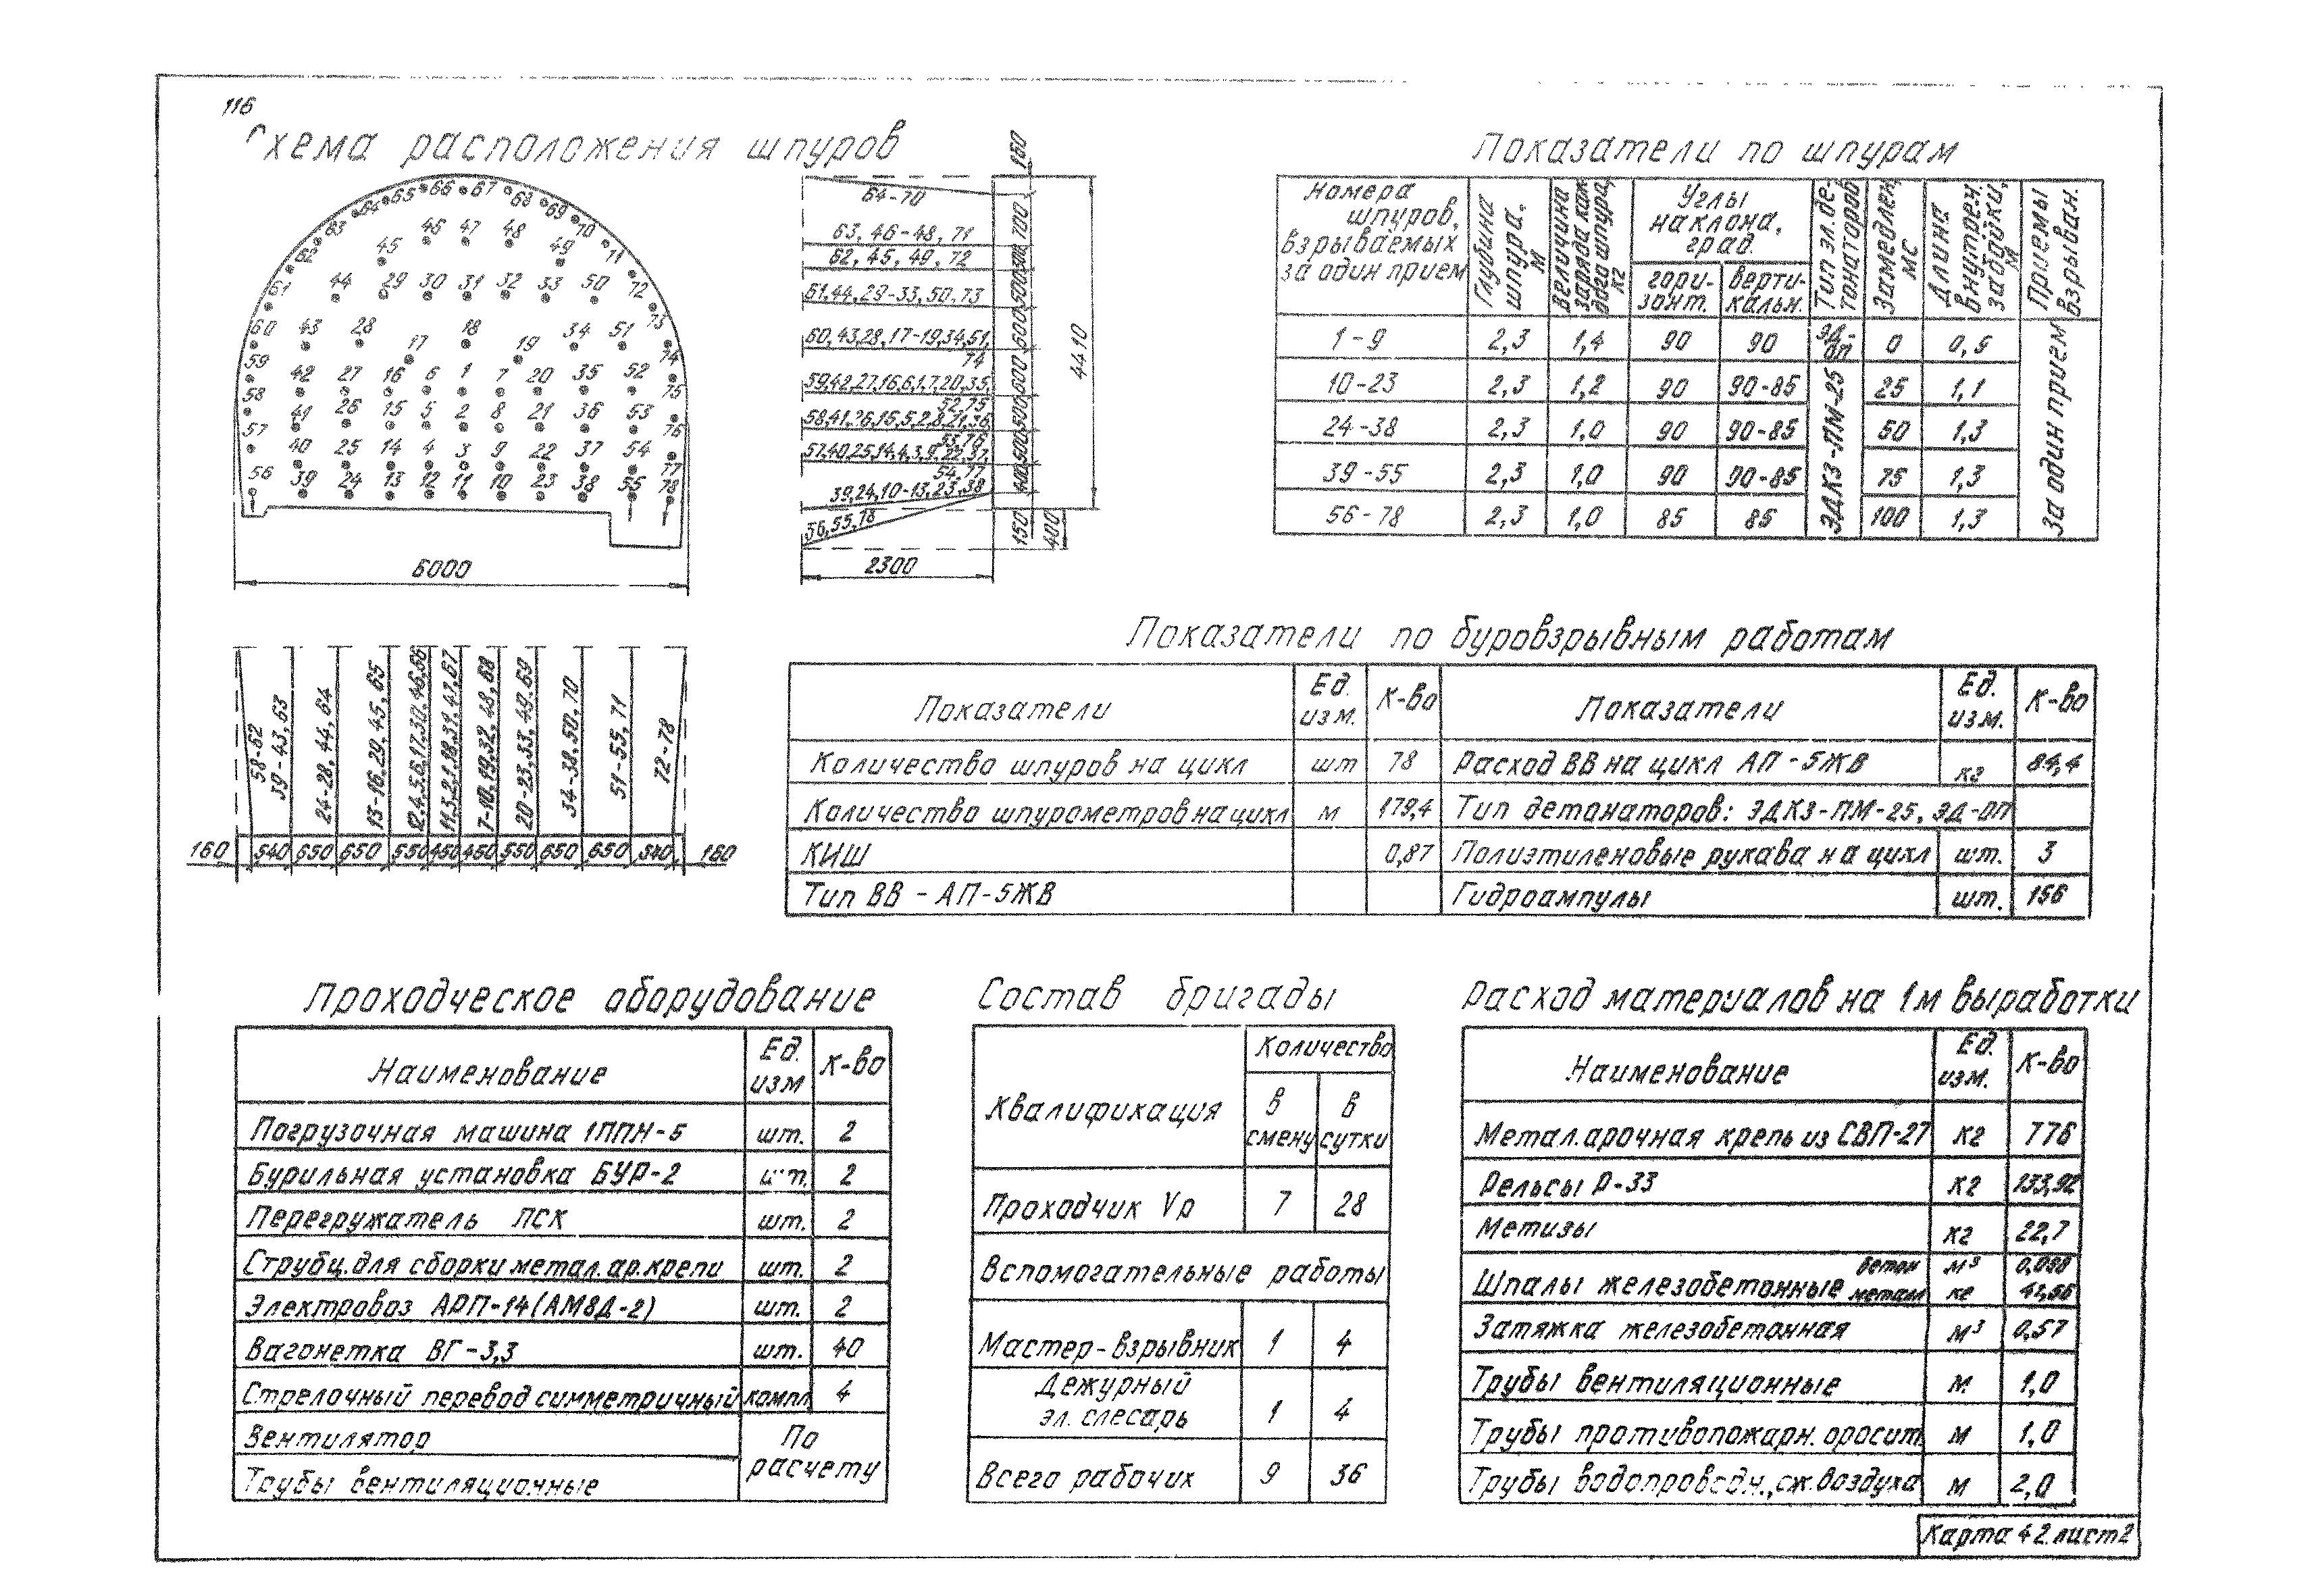 116
Схема расположения шпуров
65 66 67 68
64 69
63 70
46 47 48
45 49 71
62
61 44 29 30 31 32 33 50 72
60 43 28 18 34 51 73
17 19
59 74
42 27 16 6 1 7 20 35 52
58 75
41 26 15 5 2 8 21 36 53
57 76
40 25 14 4 3 9 22 37 54
56 77
39 24 13 12 11 10 23 38 55 78
6000
64-70
63, 46-48, 71
62, 45, 49, 72
61, 44, 29-33, 50, 73
60, 43, 28, 17-19, 34, 51,
74
59,42,27,16,6,1,7,20,35,
52,75
58,41,26,15,5,2,8,21,36
53,76
57,40,25,14,4,3,9,22,37,
54,77
39,24,10-13,23,38
56,55,78
160
700
500
500
600
600
500
500
400
150
400
4410
2300
58-62
39-43, 63
24-28, 44, 64
13-16, 29, 45, 65
12,4,5,6,17,30,46,66
11,3,2,1,18,31,47,67
7-10,19,32,48,68
20-23,33,49,69
34-38, 50, 70
51-55, 71
72-78
160 540 650 650 550 450 450 550 650 650 540 160
Показатели по шпурам
Номера шпуров, взрываемых за один прием
Глубина шпура, м
Величина заряда каждого шпура, кг
Углы наклона, град.
гори-зонт.
верти-кальн.
Тип эл. де-тонаторов
Замедлен. мс
Длина внутрен. забойки, м
Приемы взрыван.
1-9 2,3 1,4 90 90 ЭД-ОП 0 0,5
10-23 2,3 1,2 90 90-85 25 1,1
24-38 2,3 1,0 90 90-85 50 1,3
39-55 2,3 1,0 90 90-85 75 1,3
56-78 2,3 1,0 85 85 100 1,3
ЭДКЗ-ПМ-25
За один прием
Показатели по буровзрывным работам
Показатели Ед. изм. К-во Показатели Ед. изм. К-во
Количество шпуров на цикл шт 78 Расход ВВ на цикл АП-5ЖВ кг 84,4
Количество шпурометров на цикл м 179,4 Тип детонаторов: ЭДКЗ-ПМ-25, ЭД-ОП
КИШ 0,87 Полиэтиленовые рукава на цикл шт. 3
Тип ВВ - АП-5ЖВ Гидроампулы шт. 156
Проходческое оборудование
Наименование Ед. изм К-во
Погрузочная машина 1ППН-5 шт. 2
Бурильная установка БУР-2 шт. 2
Перегружатель ПСК шт. 2
Струбц. для сборки метал. ар. крепи шт. 2
Электровоз АРП-14 (АМ8Д-2) шт. 2
Вагонетка ВГ-3,3 шт. 40
Стрелочный перевод симметричный компл 4
Вентилятор По
Трубы вентиляционные расчету
Состав бригады
Квалификация Количество
в смену в сутки
Проходчик Vр 7 28
Вспомогательные работы
Мастер-взрывник 1 4
Дежурный
эл. слесарь 1 4
Всего рабочих 9 36
Расход материалов на 1м выработки
Наименование Ед. изм. К-во
Метал. арочная крепь из СВП-27 кг 776
Рельсы Р-33 кг 133,92
Метизы кг 22,7
Шпалы железобетонные бетон м³ 0,088
металл кг
Затяжка железобетонная м³ 0,57
Трубы вентиляционные м 1,0
Трубы противопожарн. оросит. м 1,0
Трубы водопроводн., сж. воздуха м 2,0
Карта 42 лист 2